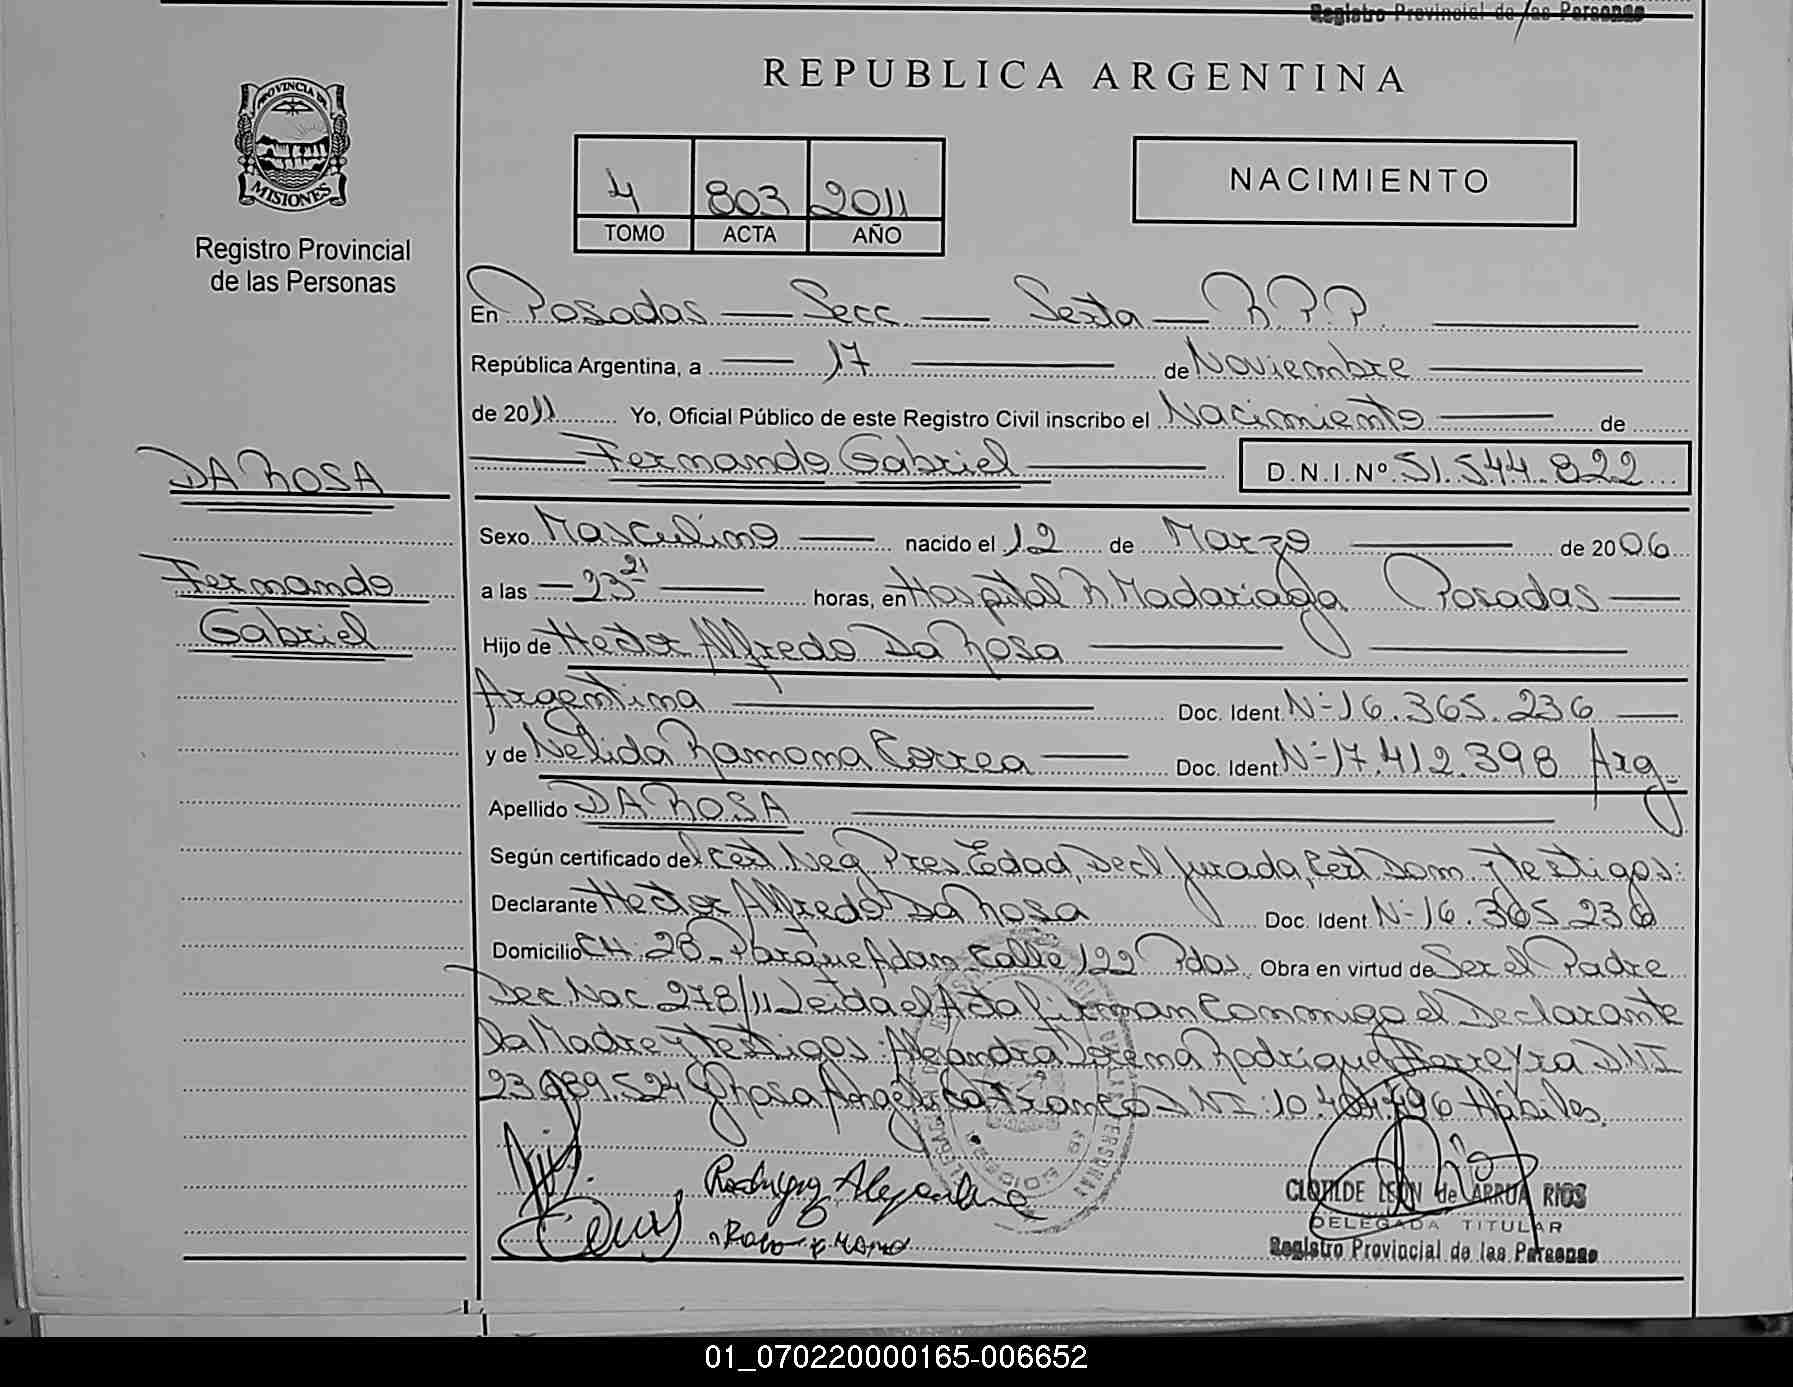 Registro Provincial de las Personas
REPUBLICA ARGENTINA
PROVINCIA DE
MISIONES
Registro Provincial
de las Personas
NACIMIENTO
4 803 2011
TOMO ACTA AÑO
En Posadas — Secc — Sexta — R.P.P.
República Argentina, a — 17 — de Noviembre
de 2011 Yo, Oficial Público de este Registro Civil inscribo el Nacimiento — de
Fernando Gabriel — D.N.I.Nº 51.544.822
DA ROSA
Fernando
Gabriel
Sexo Masculino — nacido el 12 de Marzo — de 2006
a las — 23 21 — horas, en Hospital R Madariaga Posadas —
Hijo de Hector Alfredo Da Rosa —
Argentina — Doc. Ident. Nº 16.365.236 —
y de Nelida Ramona Correa — Doc. Ident. Nº 17.412.398 Arg.
Apellido DA ROSA —
Según certificado de Cert Neg Pres Edad, Decl Jurada, Cert Dom y testigos:
Declarante Hector Alfredo Da Rosa Doc. Ident. Nº 16.365.236
Domicilio CH: 28 - Parque Adam Calle 122 Pdas. Obra en virtud de Ser el Padre
Dec. Nac. 278/11 Leida el Acta firman Conmigo el Declarante
La Madre y testigos: Alejandra Lorena Rodriguez Ferreyra DNI
y Rosa Angelica Franco DNI: Habiles.
Rodriguez Alejandra
CLOTILDE LEON de ARRUA RIOS
DELEGADA TITULAR
Registro Provincial de las Personas
01_070220000165-006652